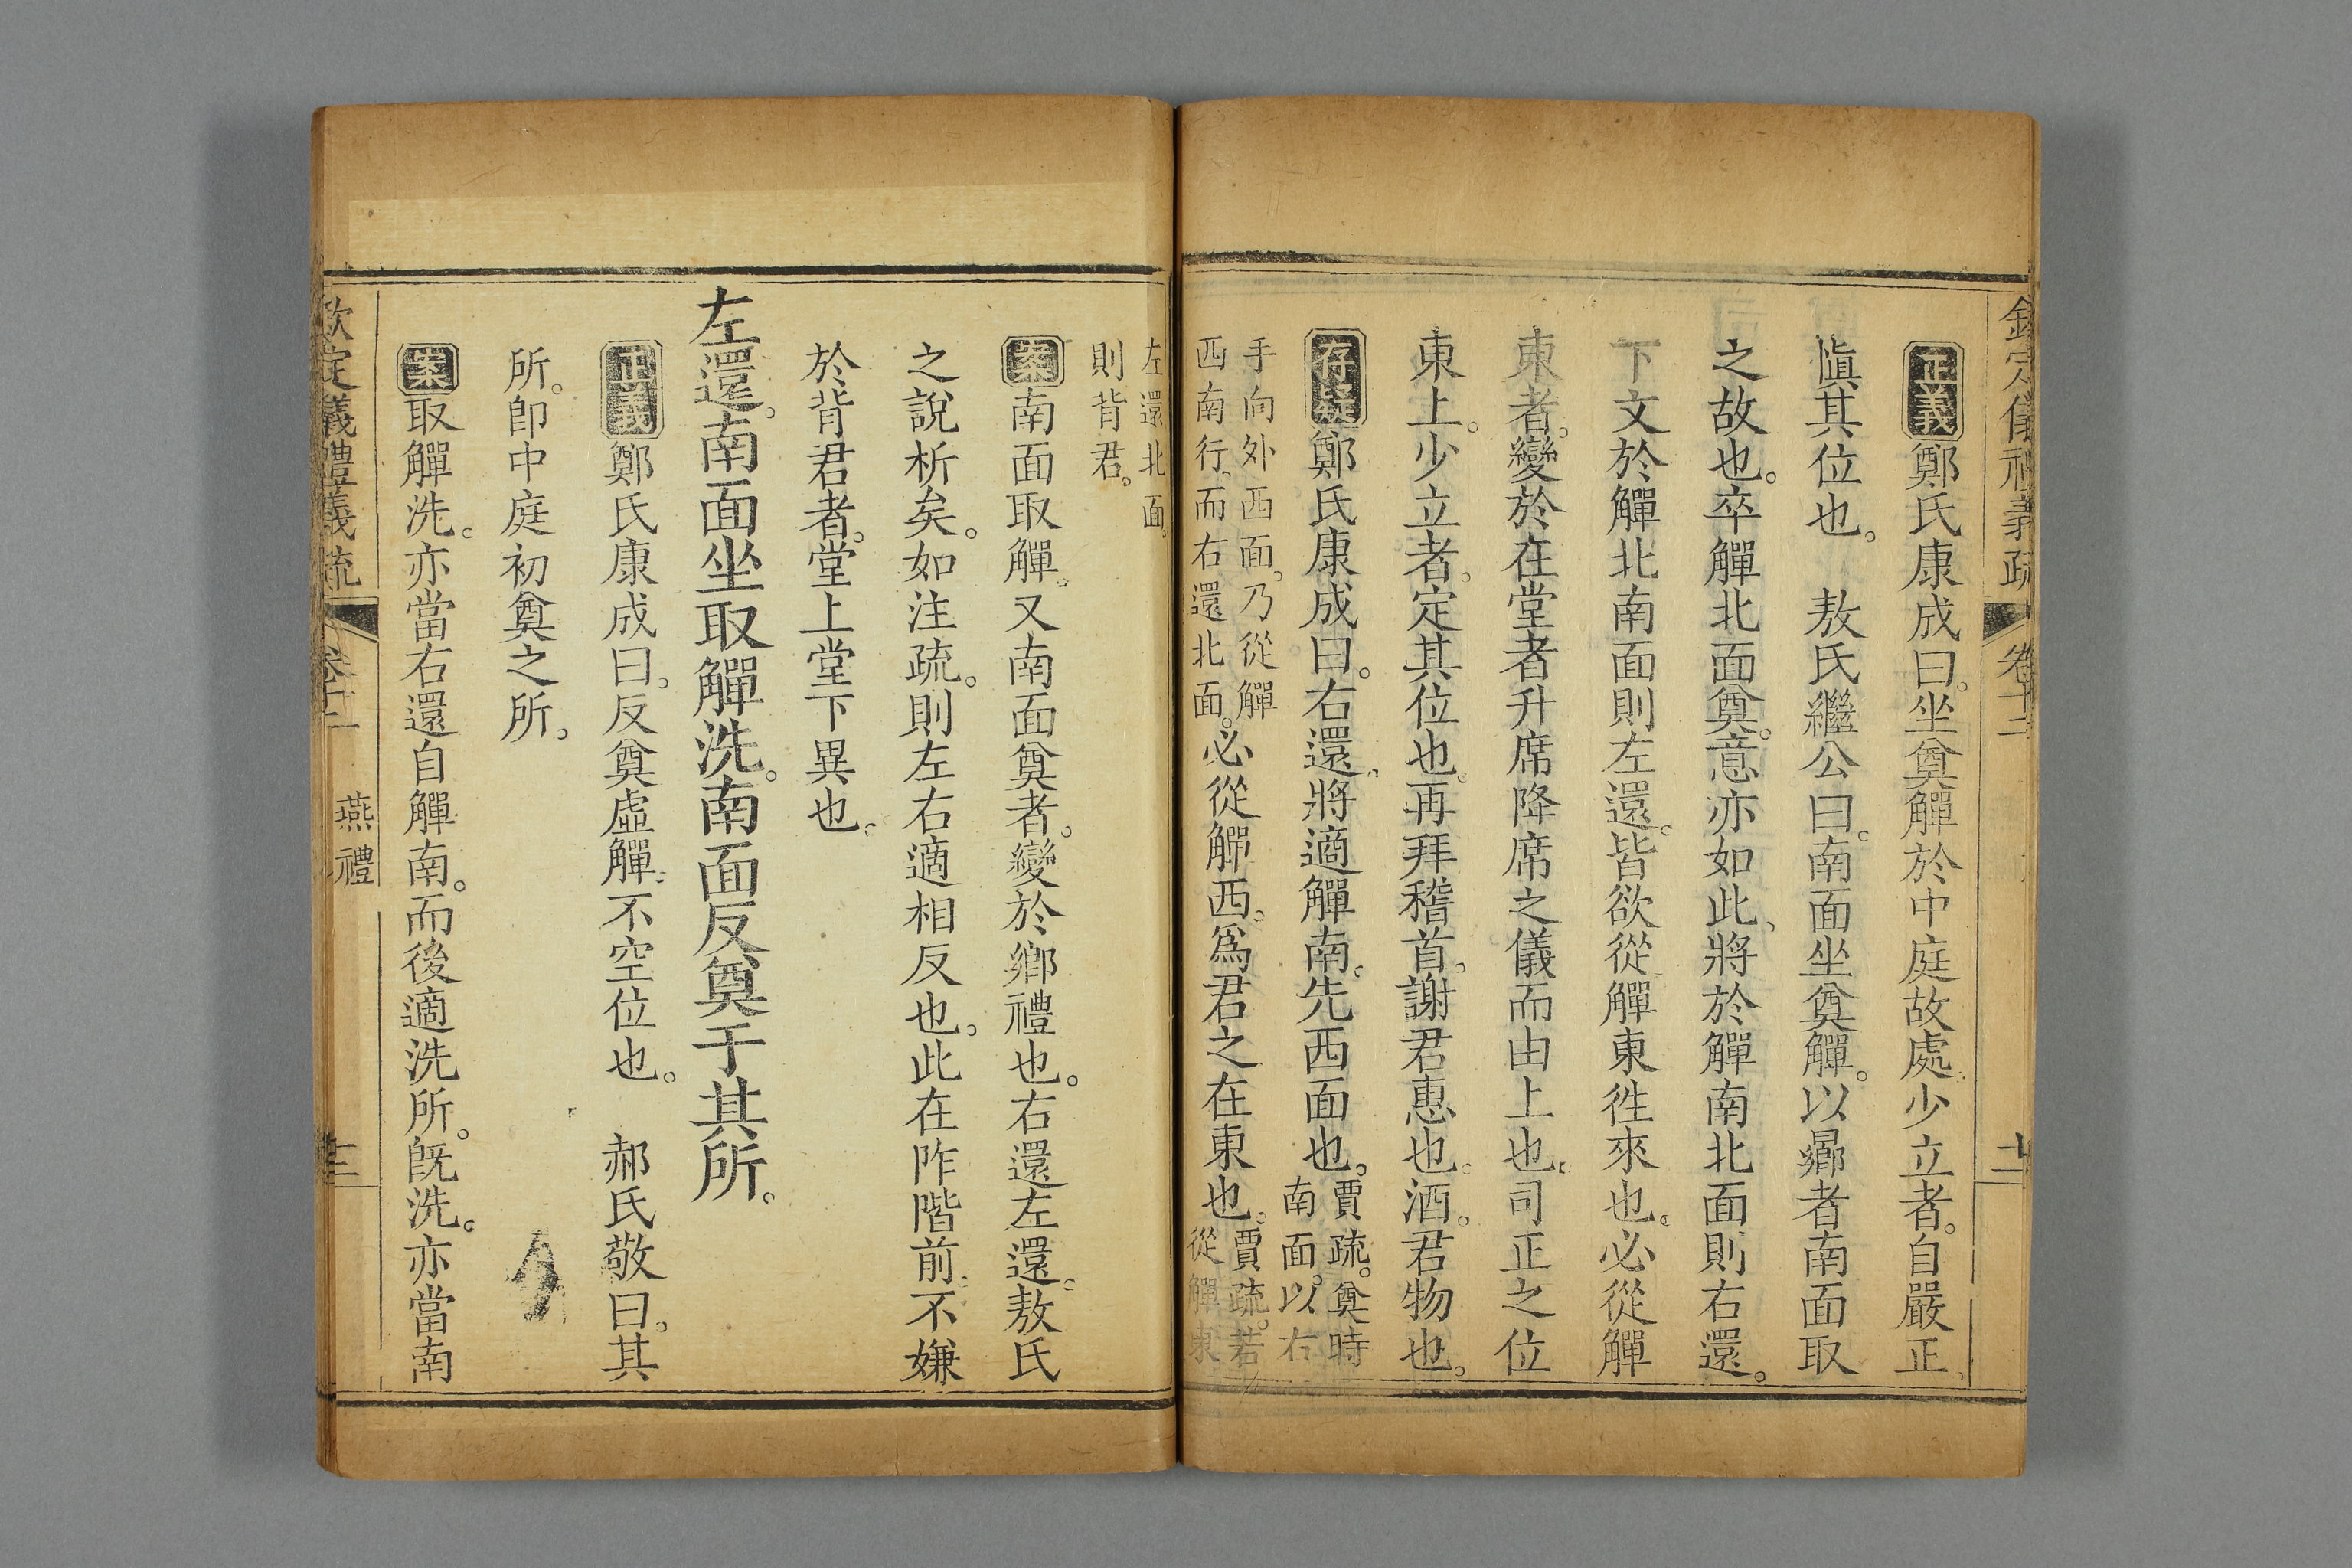 欽定儀禮義疏 卷十二 十二
正義鄭氏康成曰。坐奠觶於中庭故處。少立者。自嚴正。
愼其位也。 敖氏繼公曰。南面坐奠觶。以曏者南面取
之故也。卒觶北面奠。意亦如此。將於觶南北面則右還。
下文於觶北南面則左還。皆欲從觶東徃來也。必從觶
東者。變於在堂者升席降席之儀而由上也。司正之位
東上。少立者。定其位也。再拜稽首。謝君惠也。酒。君物也。
存疑鄭氏康成曰。右還。將適觶南。先西面也。賈疏。奠時南面。以右
手向外西面。乃從觶西南行。而右還北面。必從觶西。爲君之在東也。賈疏。若從觶東
左還北面。則背君。
案南面取觶。又南面奠者。變於鄉禮也。右還左還。敖氏
之說析矣。如注疏。則左右適相反也。此在阼階前。不嫌
於背君者。堂上堂下異也。
左還。南面坐取觶洗。南面反奠于其所。
正義鄭氏康成曰。反奠虛觶。不空位也。 郝氏敬曰。其
所。卽中庭初奠之所。
案取觶洗。亦當右還自觶南。而後適洗所。旣洗。亦當南
欽定儀禮義疏 卷十二 燕禮 十三